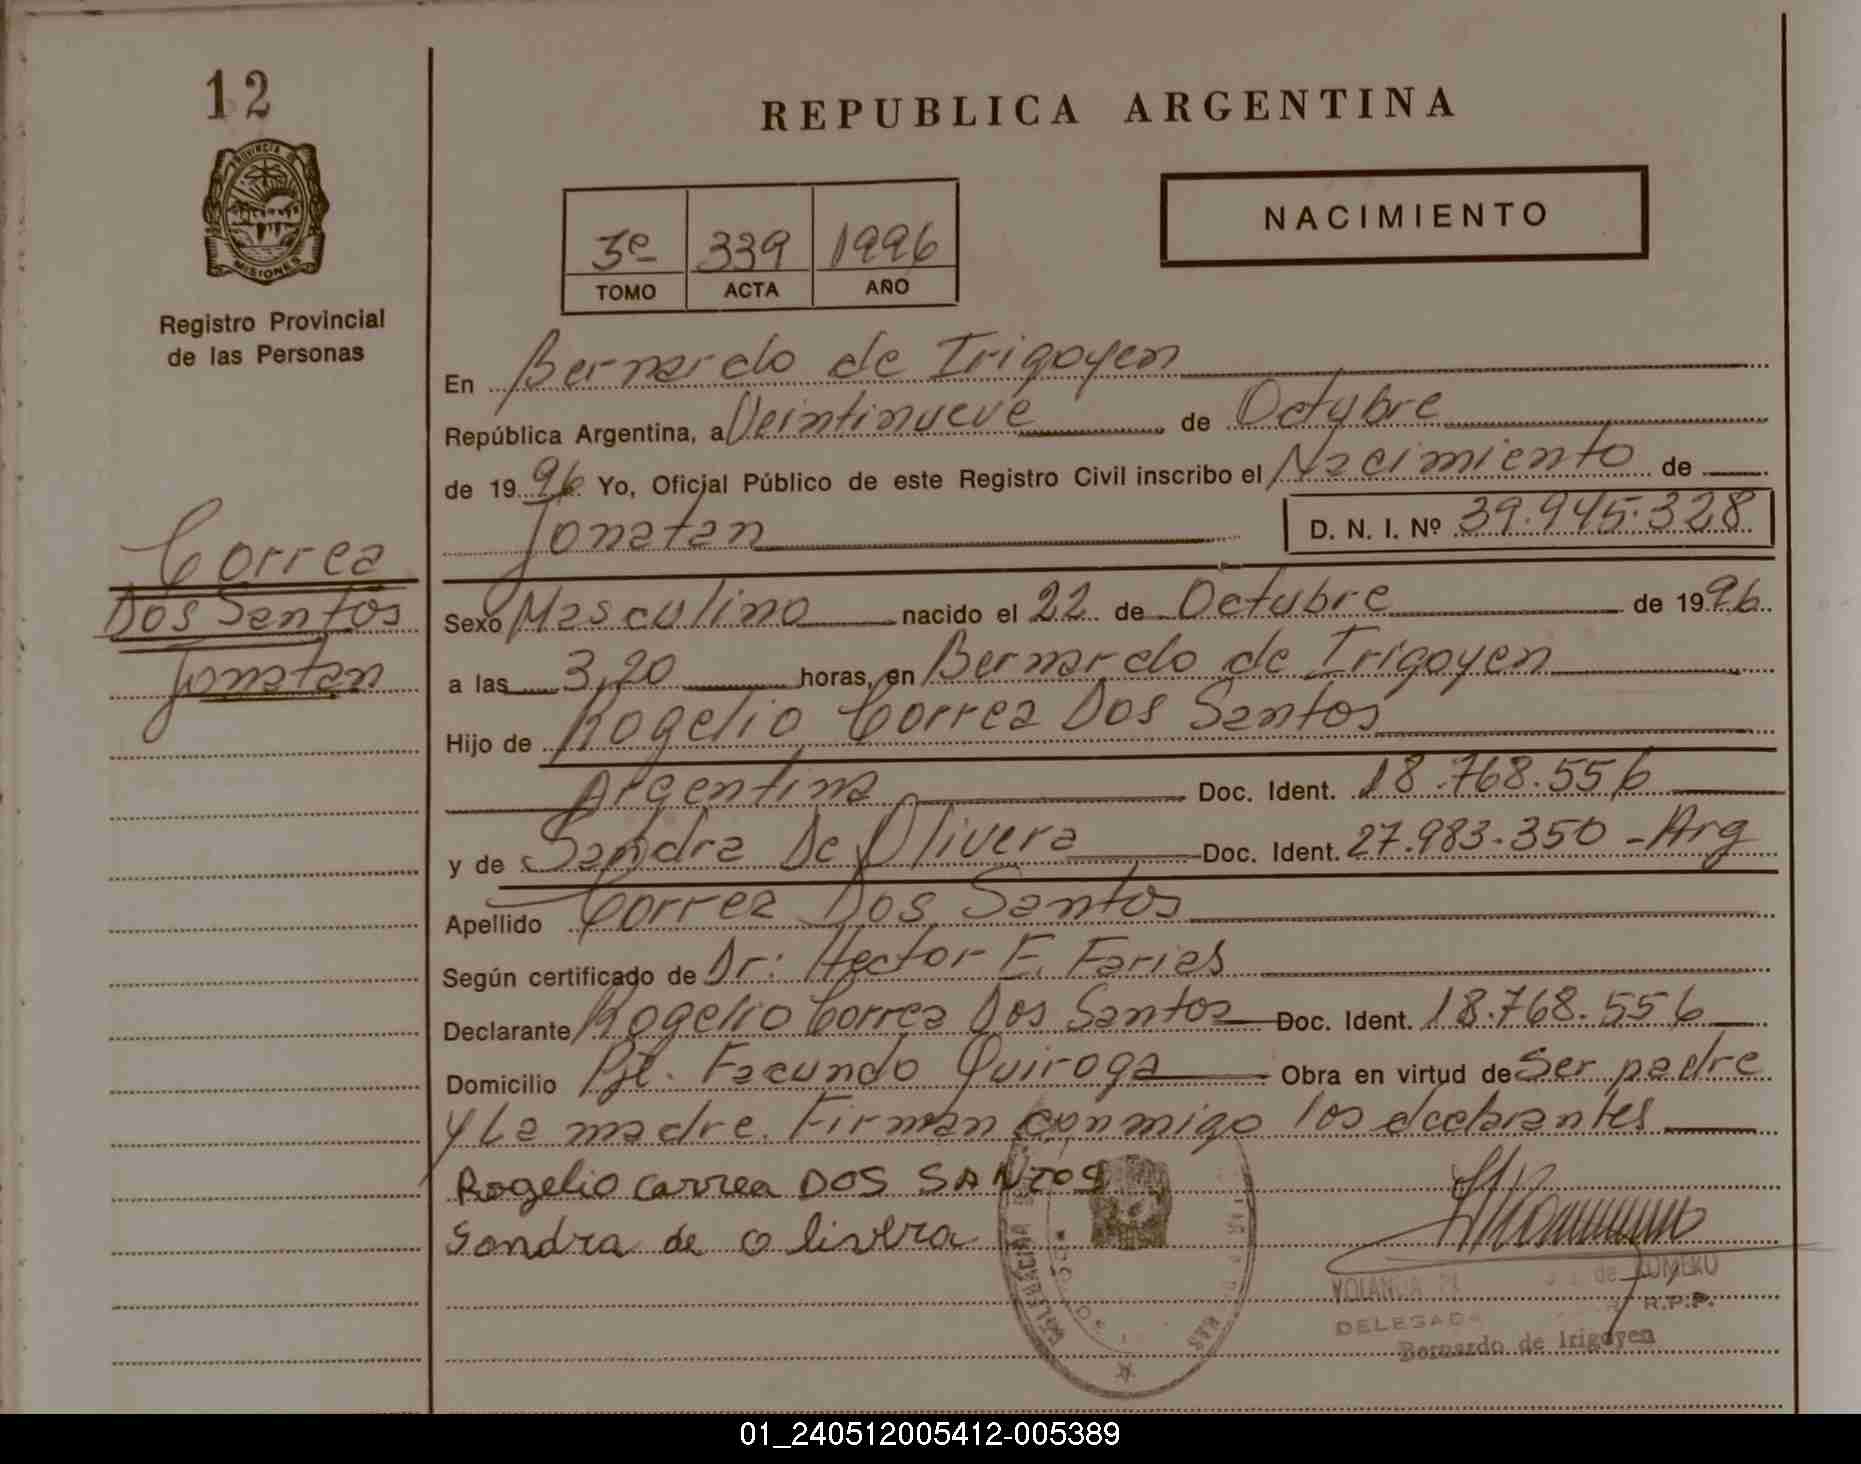 12
PROVINCIA DE
MISIONES
Registro Provincial
de las Personas
Correa
Dos Santos
Jonatan
REPUBLICA ARGENTINA
NACIMIENTO
3º 339 1996
TOMO ACTA AÑO
En Bernardo de Irigoyen
República Argentina, a Veintinueve de Octubre
de 1996. Yo, Oficial Público de este Registro Civil inscribo el Nacimiento de
Jonatan D. N. I. Nº 39.945.328
Sexo Masculino nacido el 22 de Octubre de 1996
a las 3,20 horas, en Bernardo de Irigoyen
Hijo de Rogelio Correa Dos Santos
Argentina Doc. Ident. 18.768.556
y de Sandra De Olivera Doc. Ident. 27.983.350 - Arg
Apellido Correa Dos Santos
Según certificado de Dr: Hector F. Farias
Declarante Rogelio Correa Dos Santos Doc. Ident. 18.768.556
Domicilio Pje. Facundo Quiroga Obra en virtud de Ser padre
y La madre. Firman conmigo los declarantes
Rogelio Correa DOS SANTOS
Sandra de Olivera
de ROMERO
R.P.P.
DELEGADA
Bernardo de Irigoyen
01_240512005412-005389